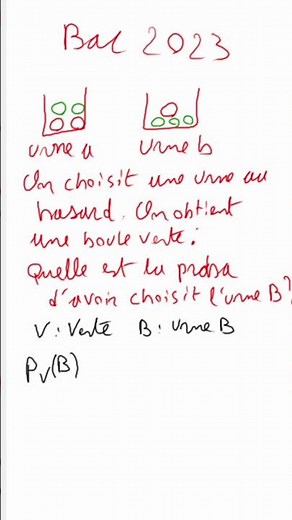 Bac 2023
urne a urne b
On choisit une urne au
hasard. On obtient
une boule verte :
Quelle est la proba
d'avoir choisit l'urne B?
V : Verte B : Urne B
PV(B)